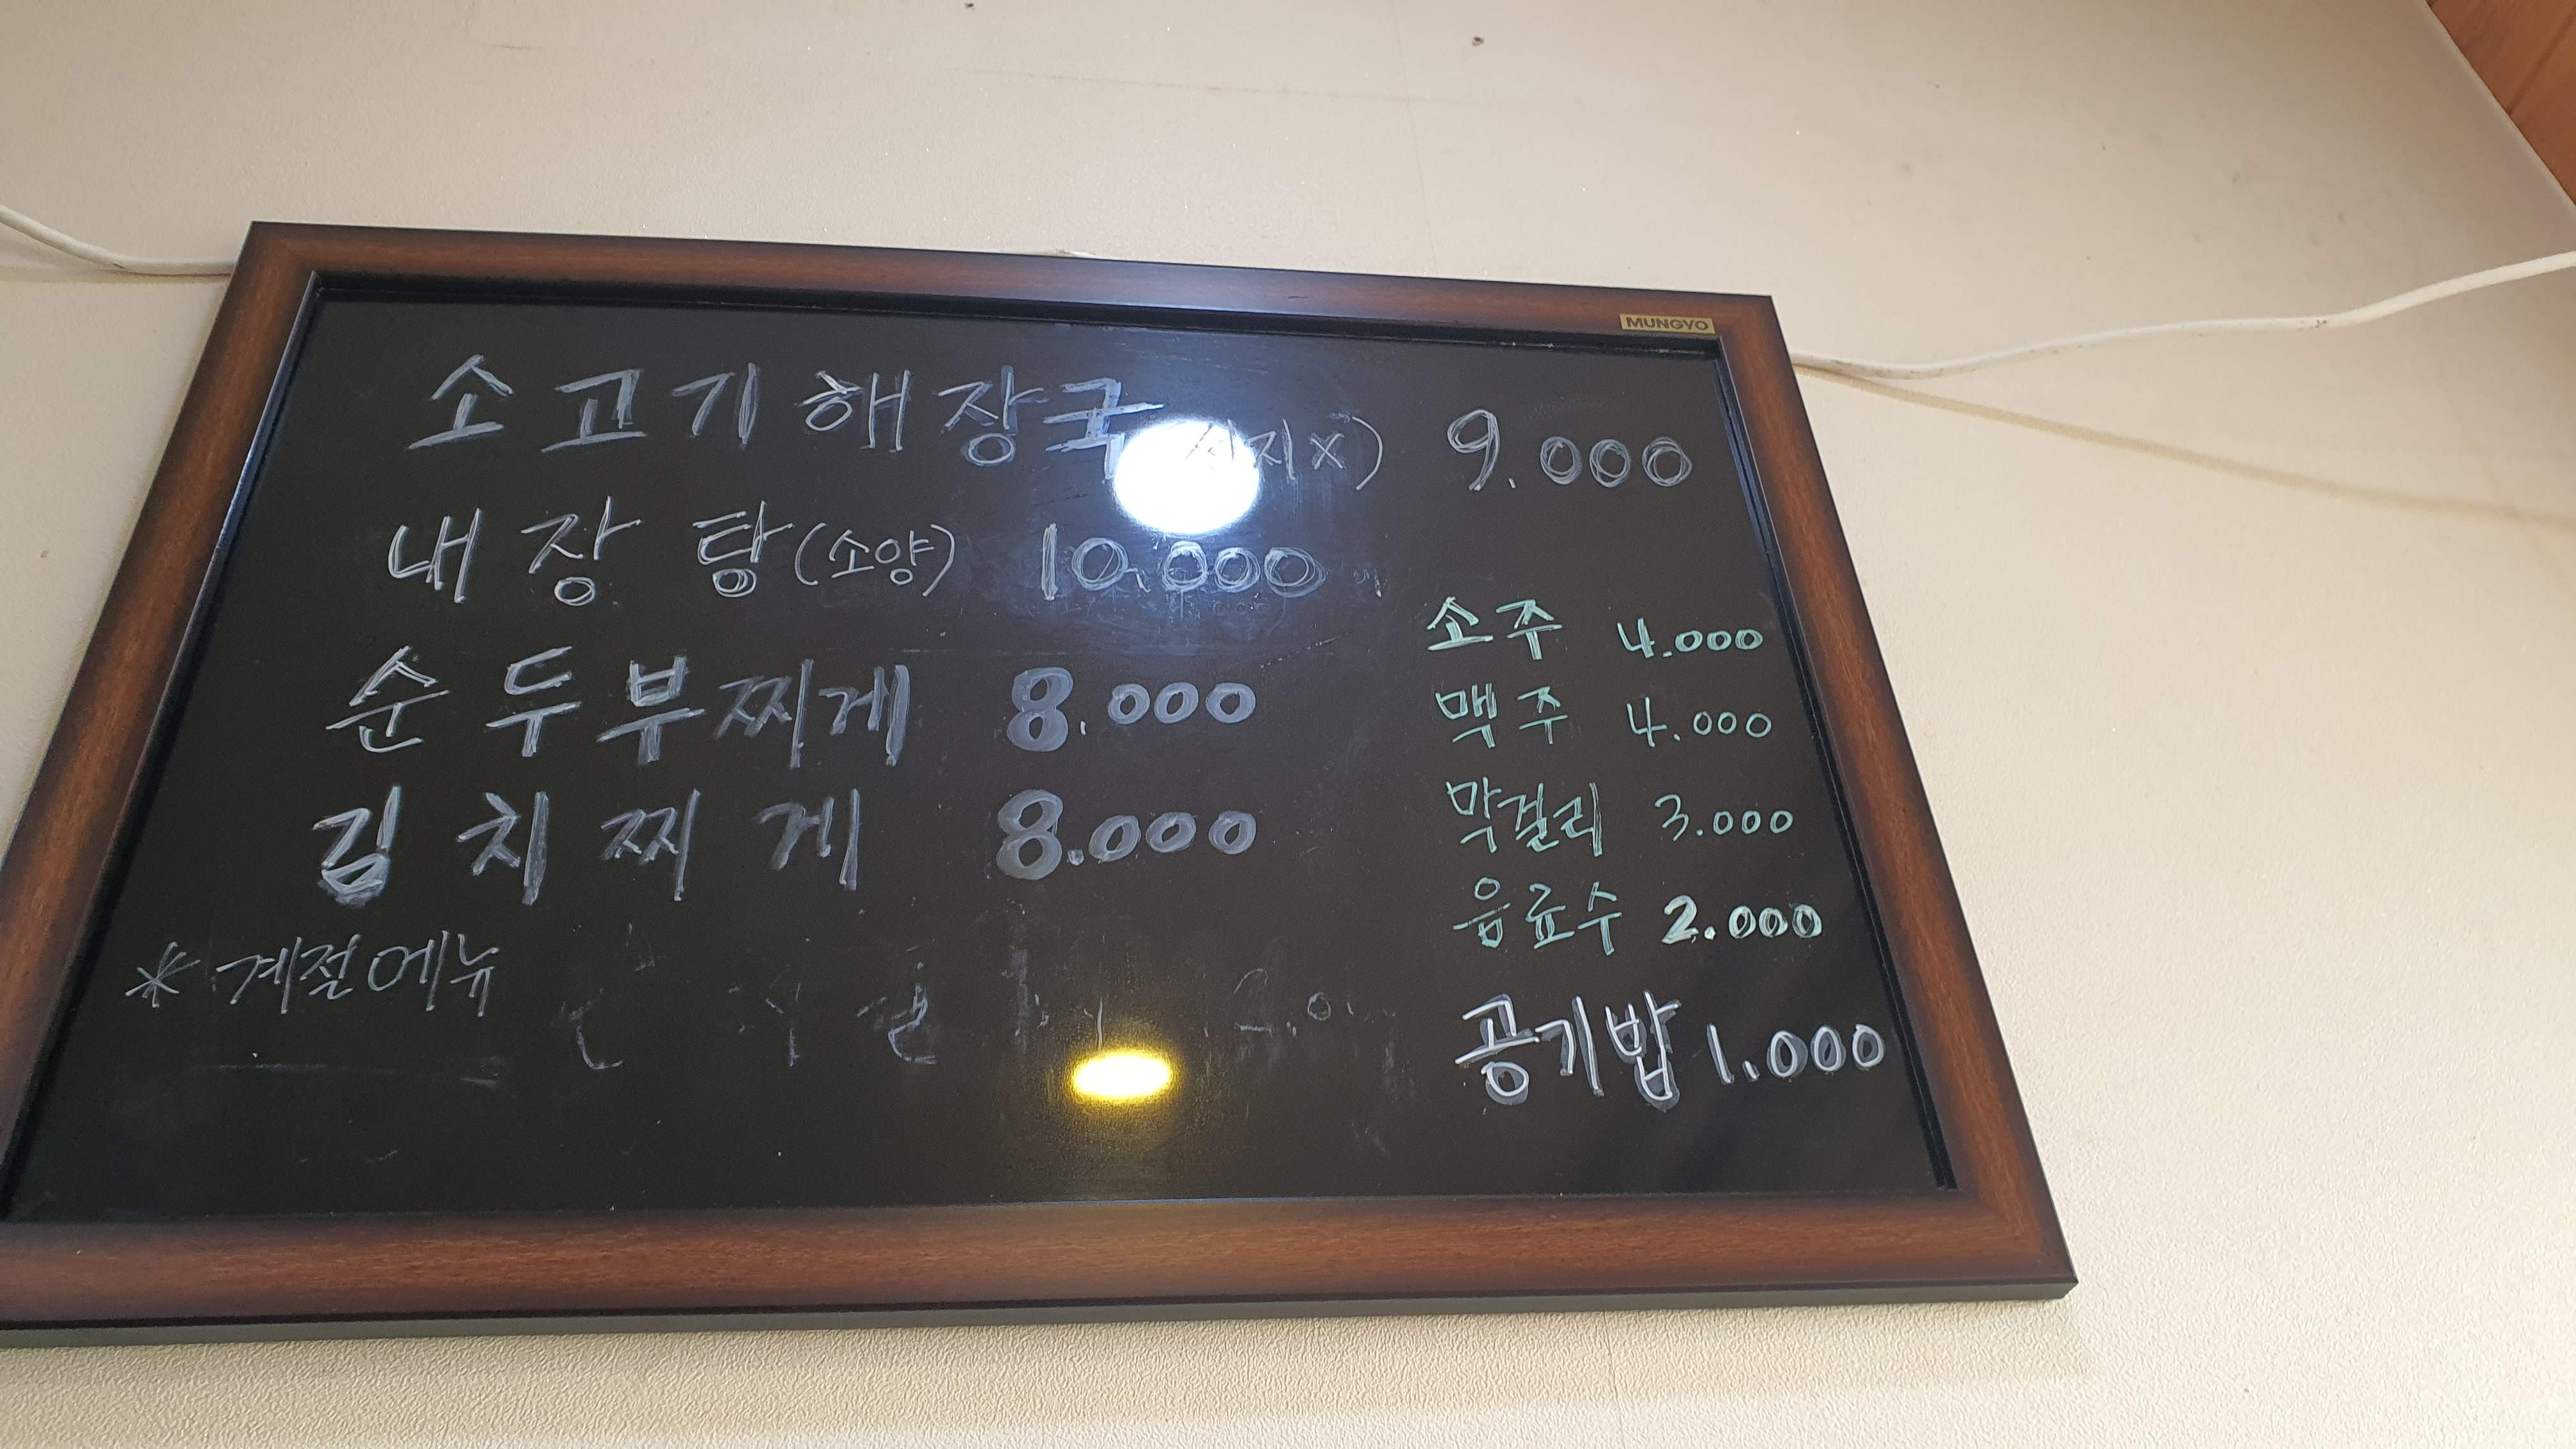 MUNGYO
소고기해장국 (선지x) 9.000
내장탕(소양) 10.000
순두부찌게 8.000
김치찌게 8.000
*계절메뉴
소주 4.000
맥주 4.000
막걸리 3.000
음료수 2.000
공기밥 1.000